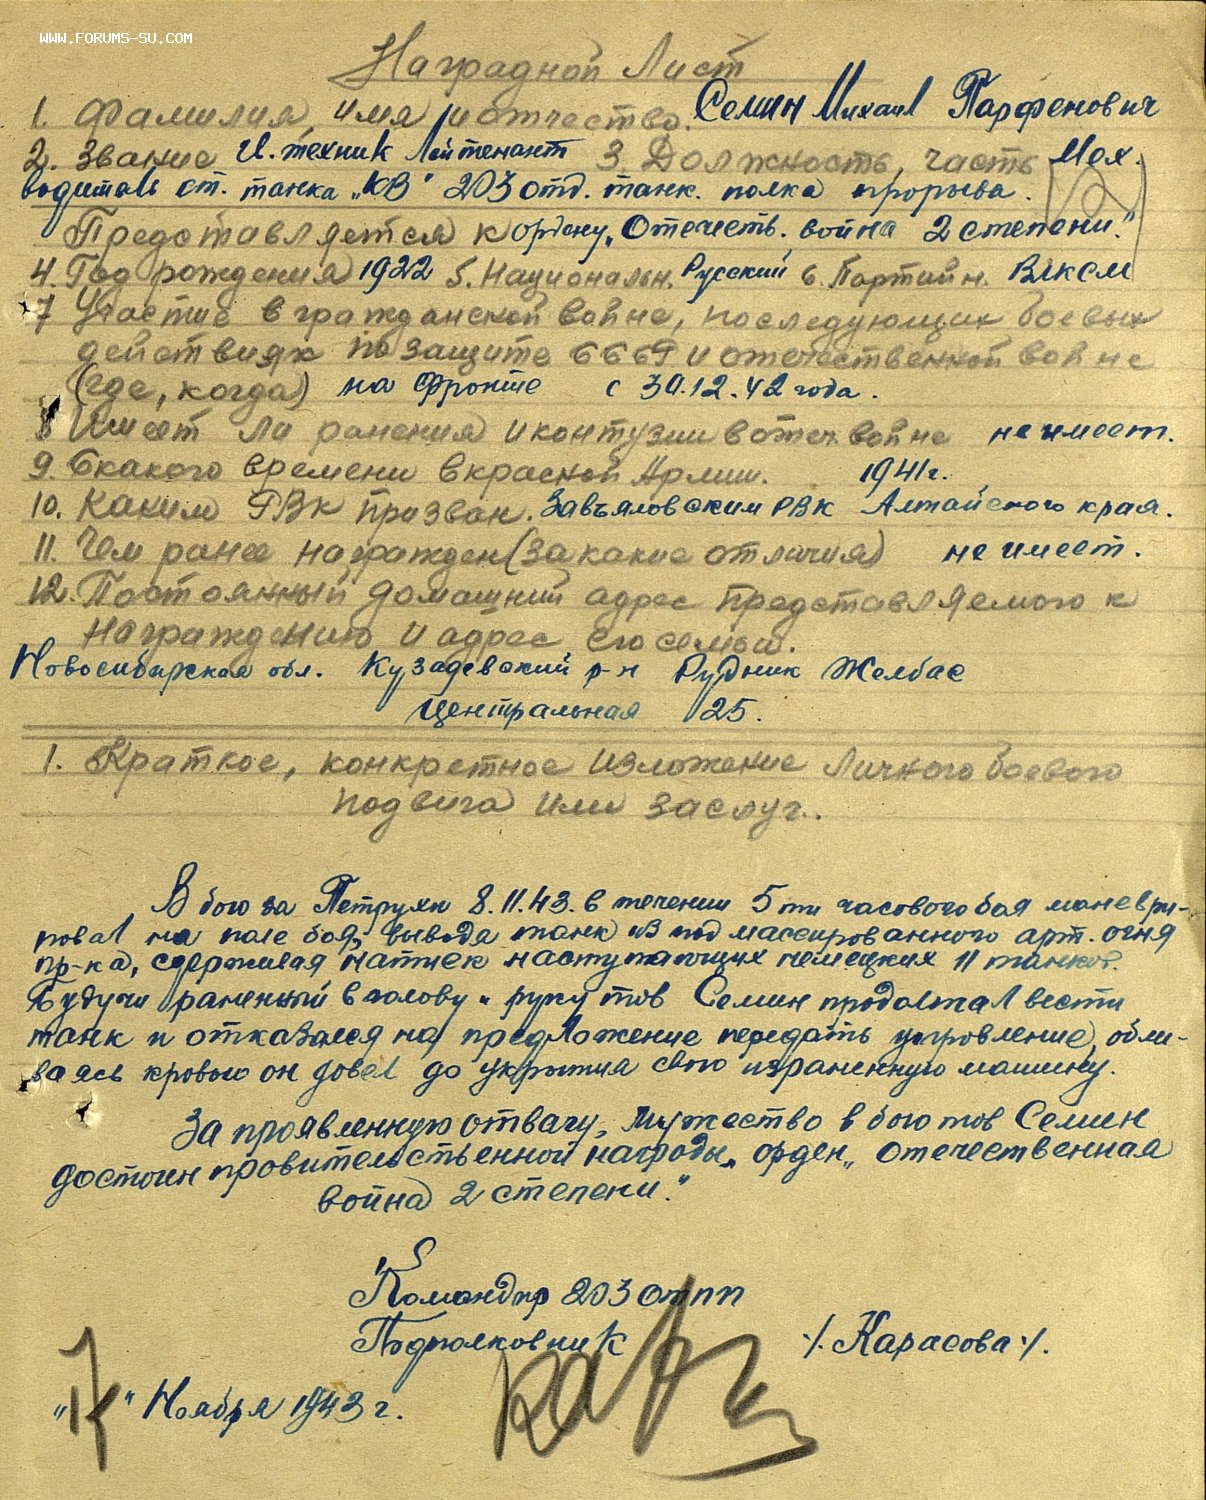 WWW.FORUMS-SU.COM
Наградной Лист
1. Фамилия, имя и отчество. Семин Михаил Парфенович
2. Звание И. техник Лейтенант 3. Должность, часть Мех.
водитель ст. танка „КВ" 203 отд. танк. полка прорыва.
Представляется к ордену „Отечеств. война 2 степени."
4. Год рождения 1922 5. Национальн. Русский 6. Партийн. ВЛКСМ
7 Участие в гражданской войне, последующих боевых
действиях по защите СССР и отечественной войне
(где, когда) на фронте с 30.12.42 года.
8 Имеет ли ранения и контузии в отеч. войне не имеет.
9. С какого времени в красной Армии. 1941 г.
10. Каким РВК призван. Завъяловским РВК Алтайского края.
11. Чем ранее награжден (за какие отличия) не имеет.
12. Постоянный домашний адрес представляемого к
награждению и адрес его семьи.
Новосибирская обл. Кузедевский р-н Рудник Желбас
Центральная 25.
1. Краткое, конкретное изложение личного боевого
подвига или заслуг.
В бою за 8.11.43. в течении 5 ти часового боя маневри-
ровал на поле боя, выводя танк из под массированного арт. огня
пр-ка, сдерживая натиск наступающих немецких 11 танков.
Будучи раненный в голову и руку тов Семин продолжал вести
танк и отказался на предложение передать управление, обли-
ваясь кровью он довел до укрытия свою израненную машину.
За проявленную отвагу, мужество в бою тов Семин
достоин правительственной награды „ орден „ отечественная
война 2 степени."
Командир 203 отпп
Подполковник /. Карасова ./.
" Ноября 1943 г.